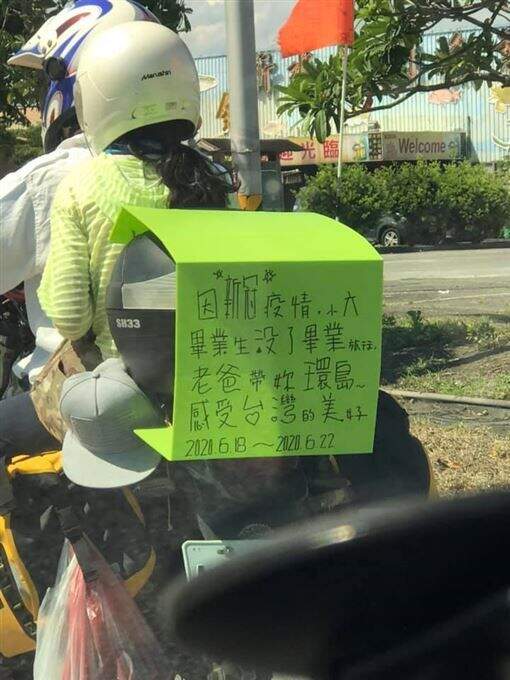 Marushin
迎光臨
Welcome
SH33
因新冠疫情,小六
畢業生没了畢業旅行,
老爸帶妳環島~
感受台灣的美好
2020.6.18~2020.6.22